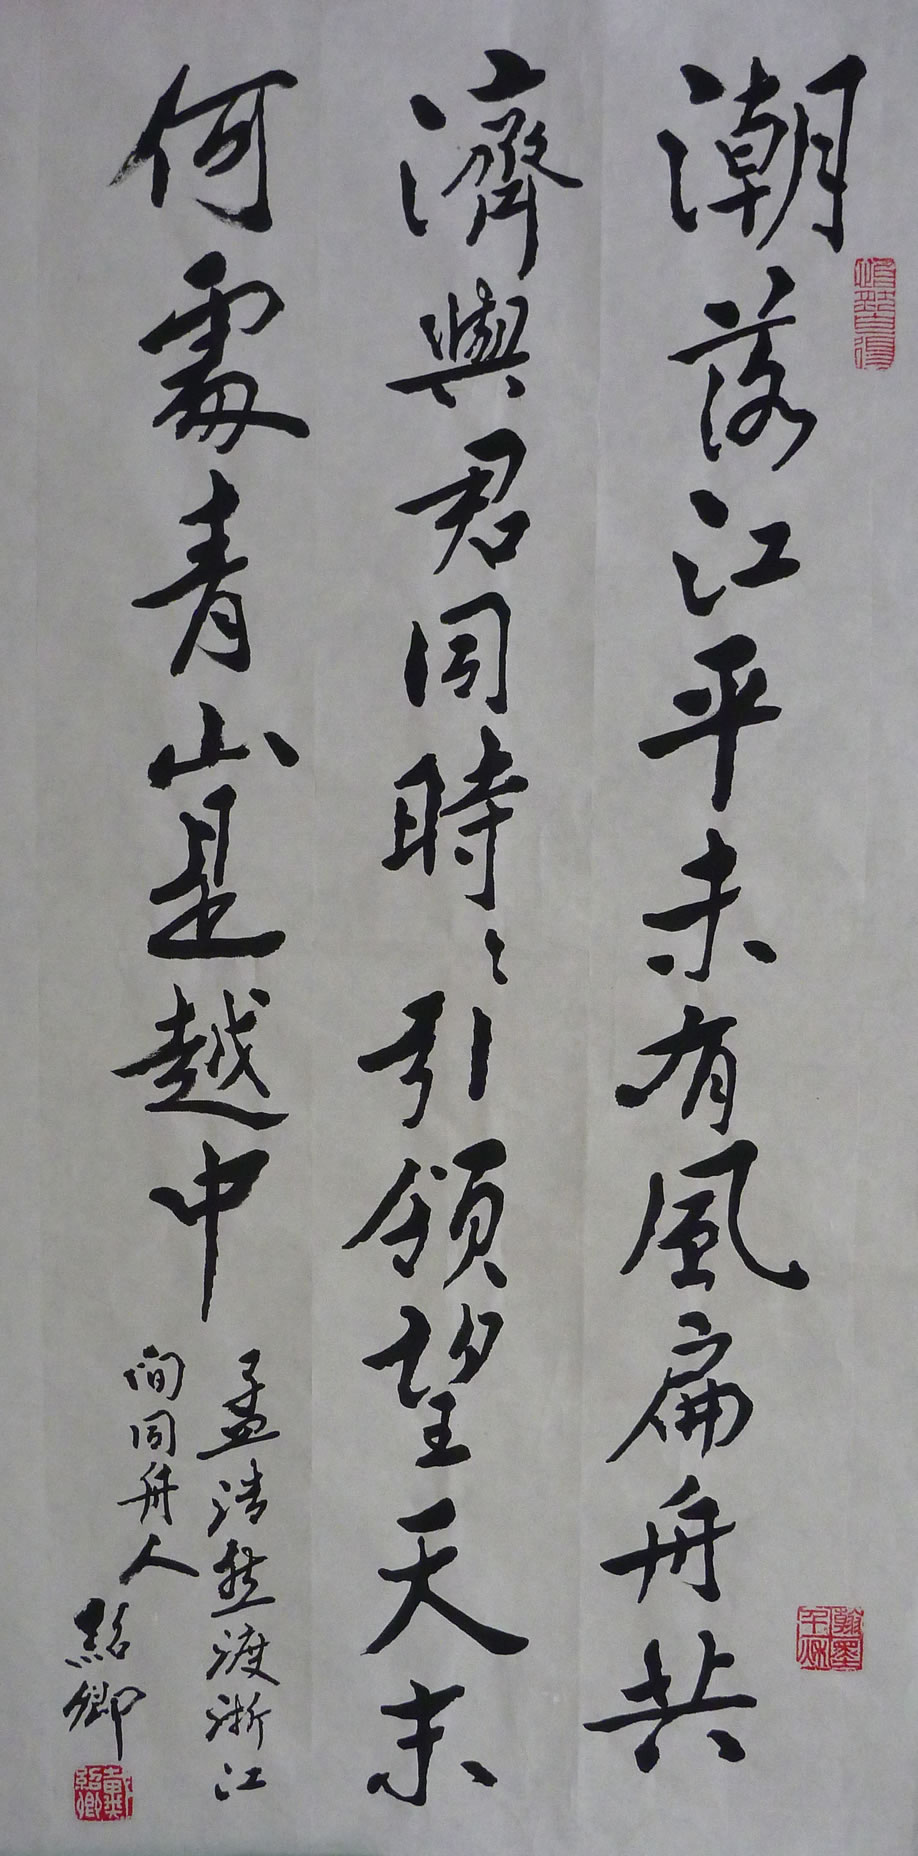 潮落江平未有風扁舟共
濟與君同時時引領望天末
何處青山是越中
孟浩然渡浙江
問同舟人
紹卿
翰墨千秋
戴紹卿